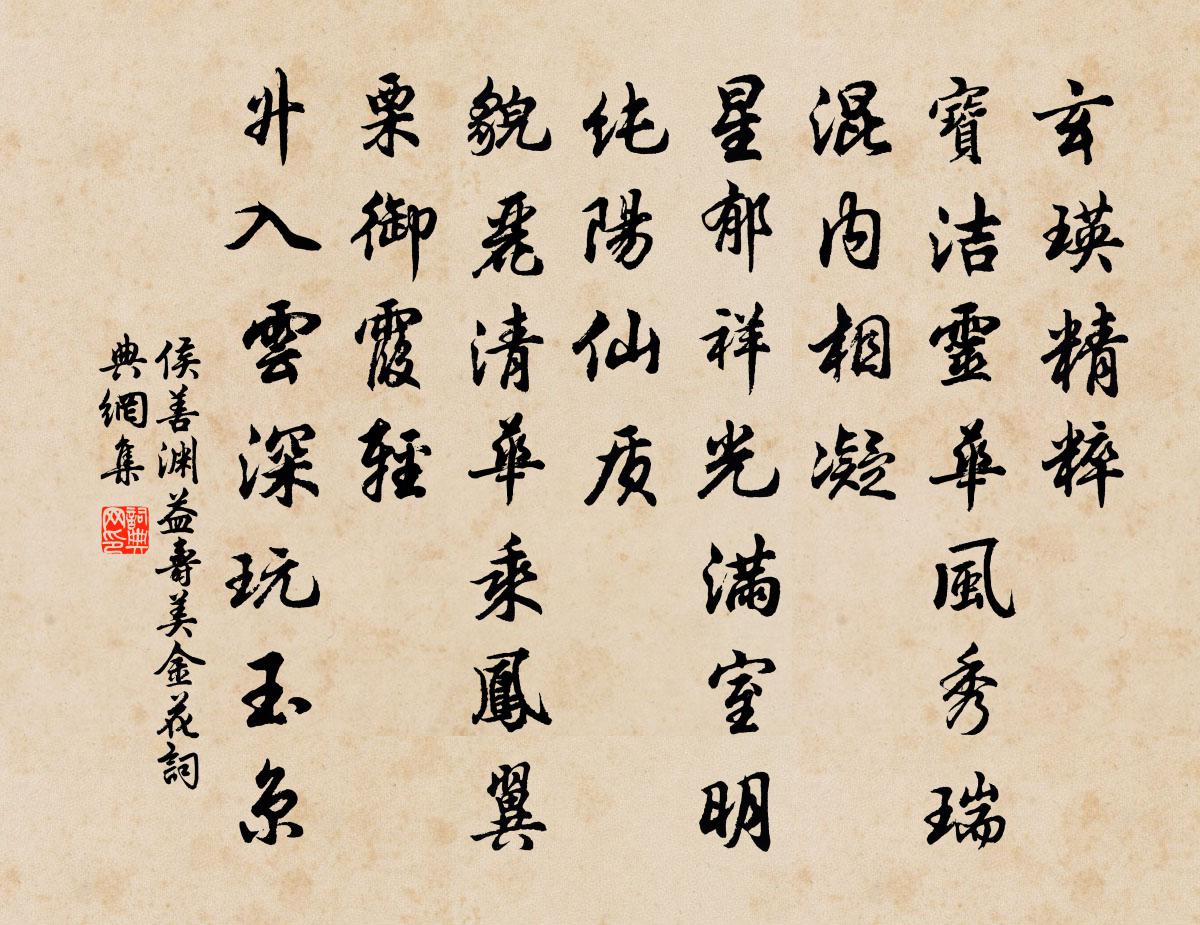 玄瑛精粹
寶洁靈華風秀瑞
混内相凝
星郁祥光滿室明
纯陽仙质
貌麗清華乘鳳翼
栗御霞輕
升入雲深玩玉京
侯善渊益壽美金花詞
典網集
詞典网印